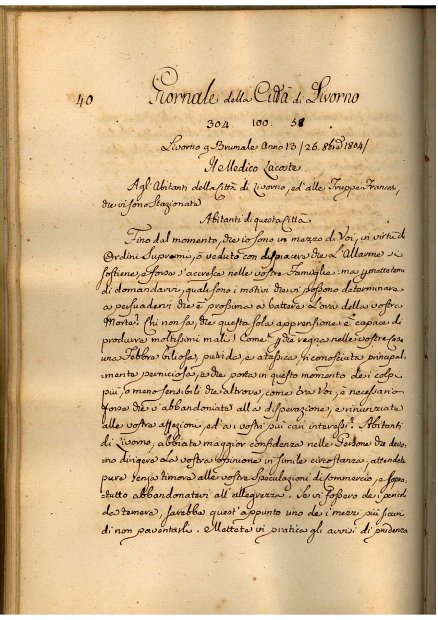 40
Giornale della Città di Livorno
304. 100. 58
Livorno 9 Brumale Anno 13 / 26. 8bre 1804 /
Il Medico Lacoste
Agl'Abitanti della Città di Livorno, ed alle Truppe Francesi,
che vi sono Stazionate
Abitanti di questa Città
Fino dal momento, che io sono in mezzo di Voi, in virtù di
Ordini Supremi, ò veduto con dispiacere che l'Allarme si
sostiene, e forse s'accresce nelle vostre Famiglie: ma permettetemi
di domandarvi, quali sono i motivi che vi possono determinare
a persuadervi che è prossima a battere l'ora della vostra
Morte? Chi non sa, che questa sola apprensione è capace di
produrre moltissimi mali! Come? perche regna nelle vostre Case
una Febbre biliosa, putrida, e atassica, riconosciuta principal-
mente perniciosa, e che porta in questo momento dei colpi
più, o meno sensibili che altrove, come tra Voi, è necessario
forse che v'abbandoniate alla disperazione, e rinunziate
alle vostre affezioni, ed ai vostri più cari interessi? Abitanti
di Livorno, abbiate maggior confidenza nelle Persone che devo-
no dirigere la vostra opinione in simile circostanza, attendete
pure senza timore alle vostre Speculazioni di commercio, e sopra-
tutto abbandonatevi all'allegrezza. Se vi fossero dei pericoli
da temere, sarebbe quest'appunto uno dei mezzi più sicuri
di non paventarli. Mettete in pratica gli avvisi di prudenza